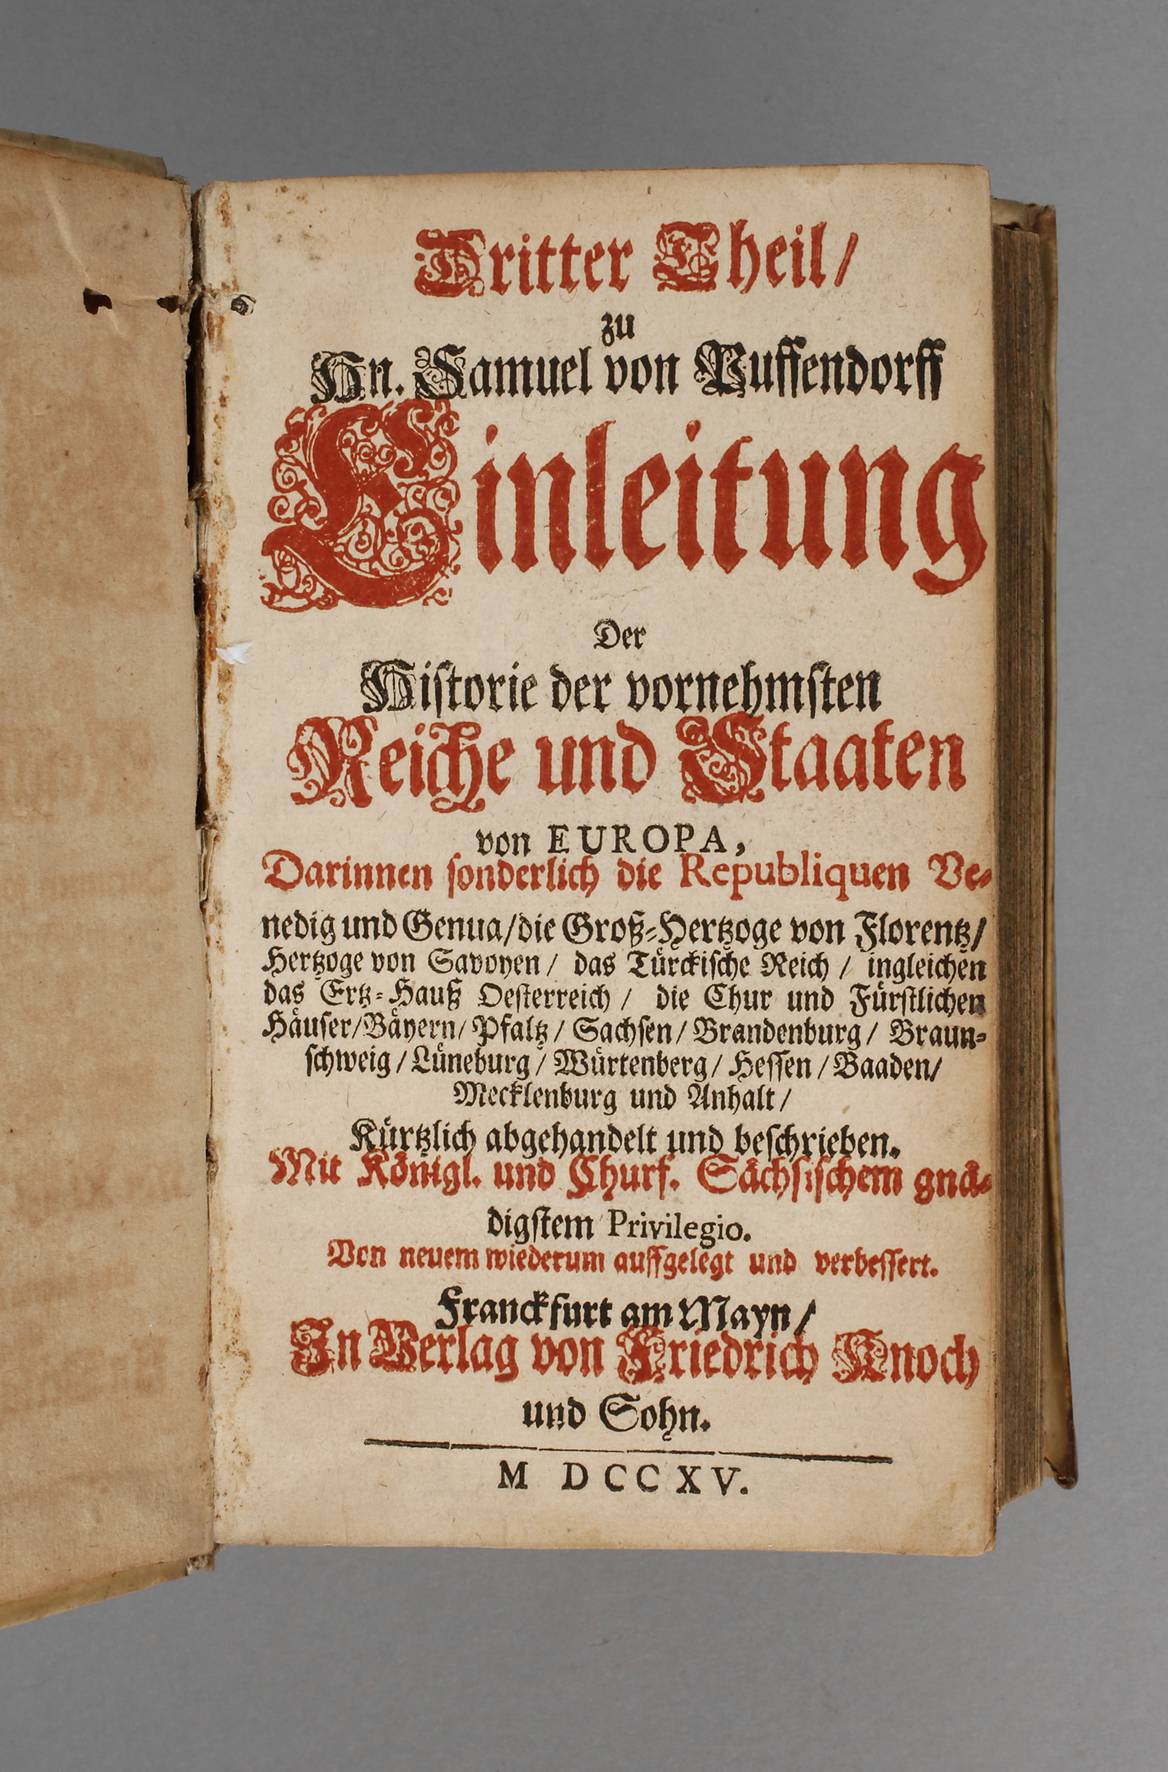 Dritter Theil/
zu
Hn. Samuel von Puffendorff
Einleitung
Der
Historie der vornehmsten
Reiche und Staaten
von EUROPA,
Darinnen sonderlich die Republiquen Ve-
nedig und Genua/die Groß-Hertzoge von Florentz/
Hertzoge von Savoyen/ das Türckische Reich/ ingleichen
das Ertz-Hauß Oesterreich/ die Chur und Fürstlichen
Häuser/Bäyern/Pfaltz/Sachsen/Brandenburg/Braun-
schweig/Lüneburg/Würtenberg/Hessen/Baaden/
Mecklenburg und Anhalt/
Kürtzlich abgehandelt und beschrieben.
Mit Königl. und Churf. Sächsischem gnä-
digstem Privilegio.
Von neuem wiederum auffgelegt und verbessert.
Franckfurt am Mayn/
In Verlag von Friedrich Knoch
und Sohn.
M DCCXV.